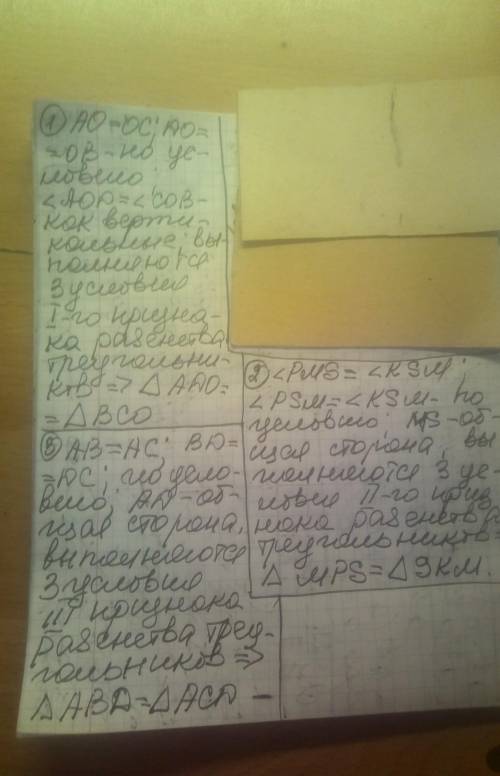 ① AO=OC; AO=
=OB - по ус-
ловию
<AOD=<COB-
как верти-
кальные; вы-
полняются
3 условия
I-го призна-
ка равенства
треугольни-
ков => △ADO=
=△BCO
② <PMS= <KSM;
<PSM=<KSM- по
условию MS-об-
щая сторона, вы-
полняются 3 ус-
ловия II-го приз-
нака равенства
треугольников=
△ MPS=△SKM.
③ AB=AC; BD=
=DC; по усло-
вию; AD-об-
щая сторона,
выполняются
3 условия
III признака
равенства треу-
гольников =>
△ABD=△ACD -